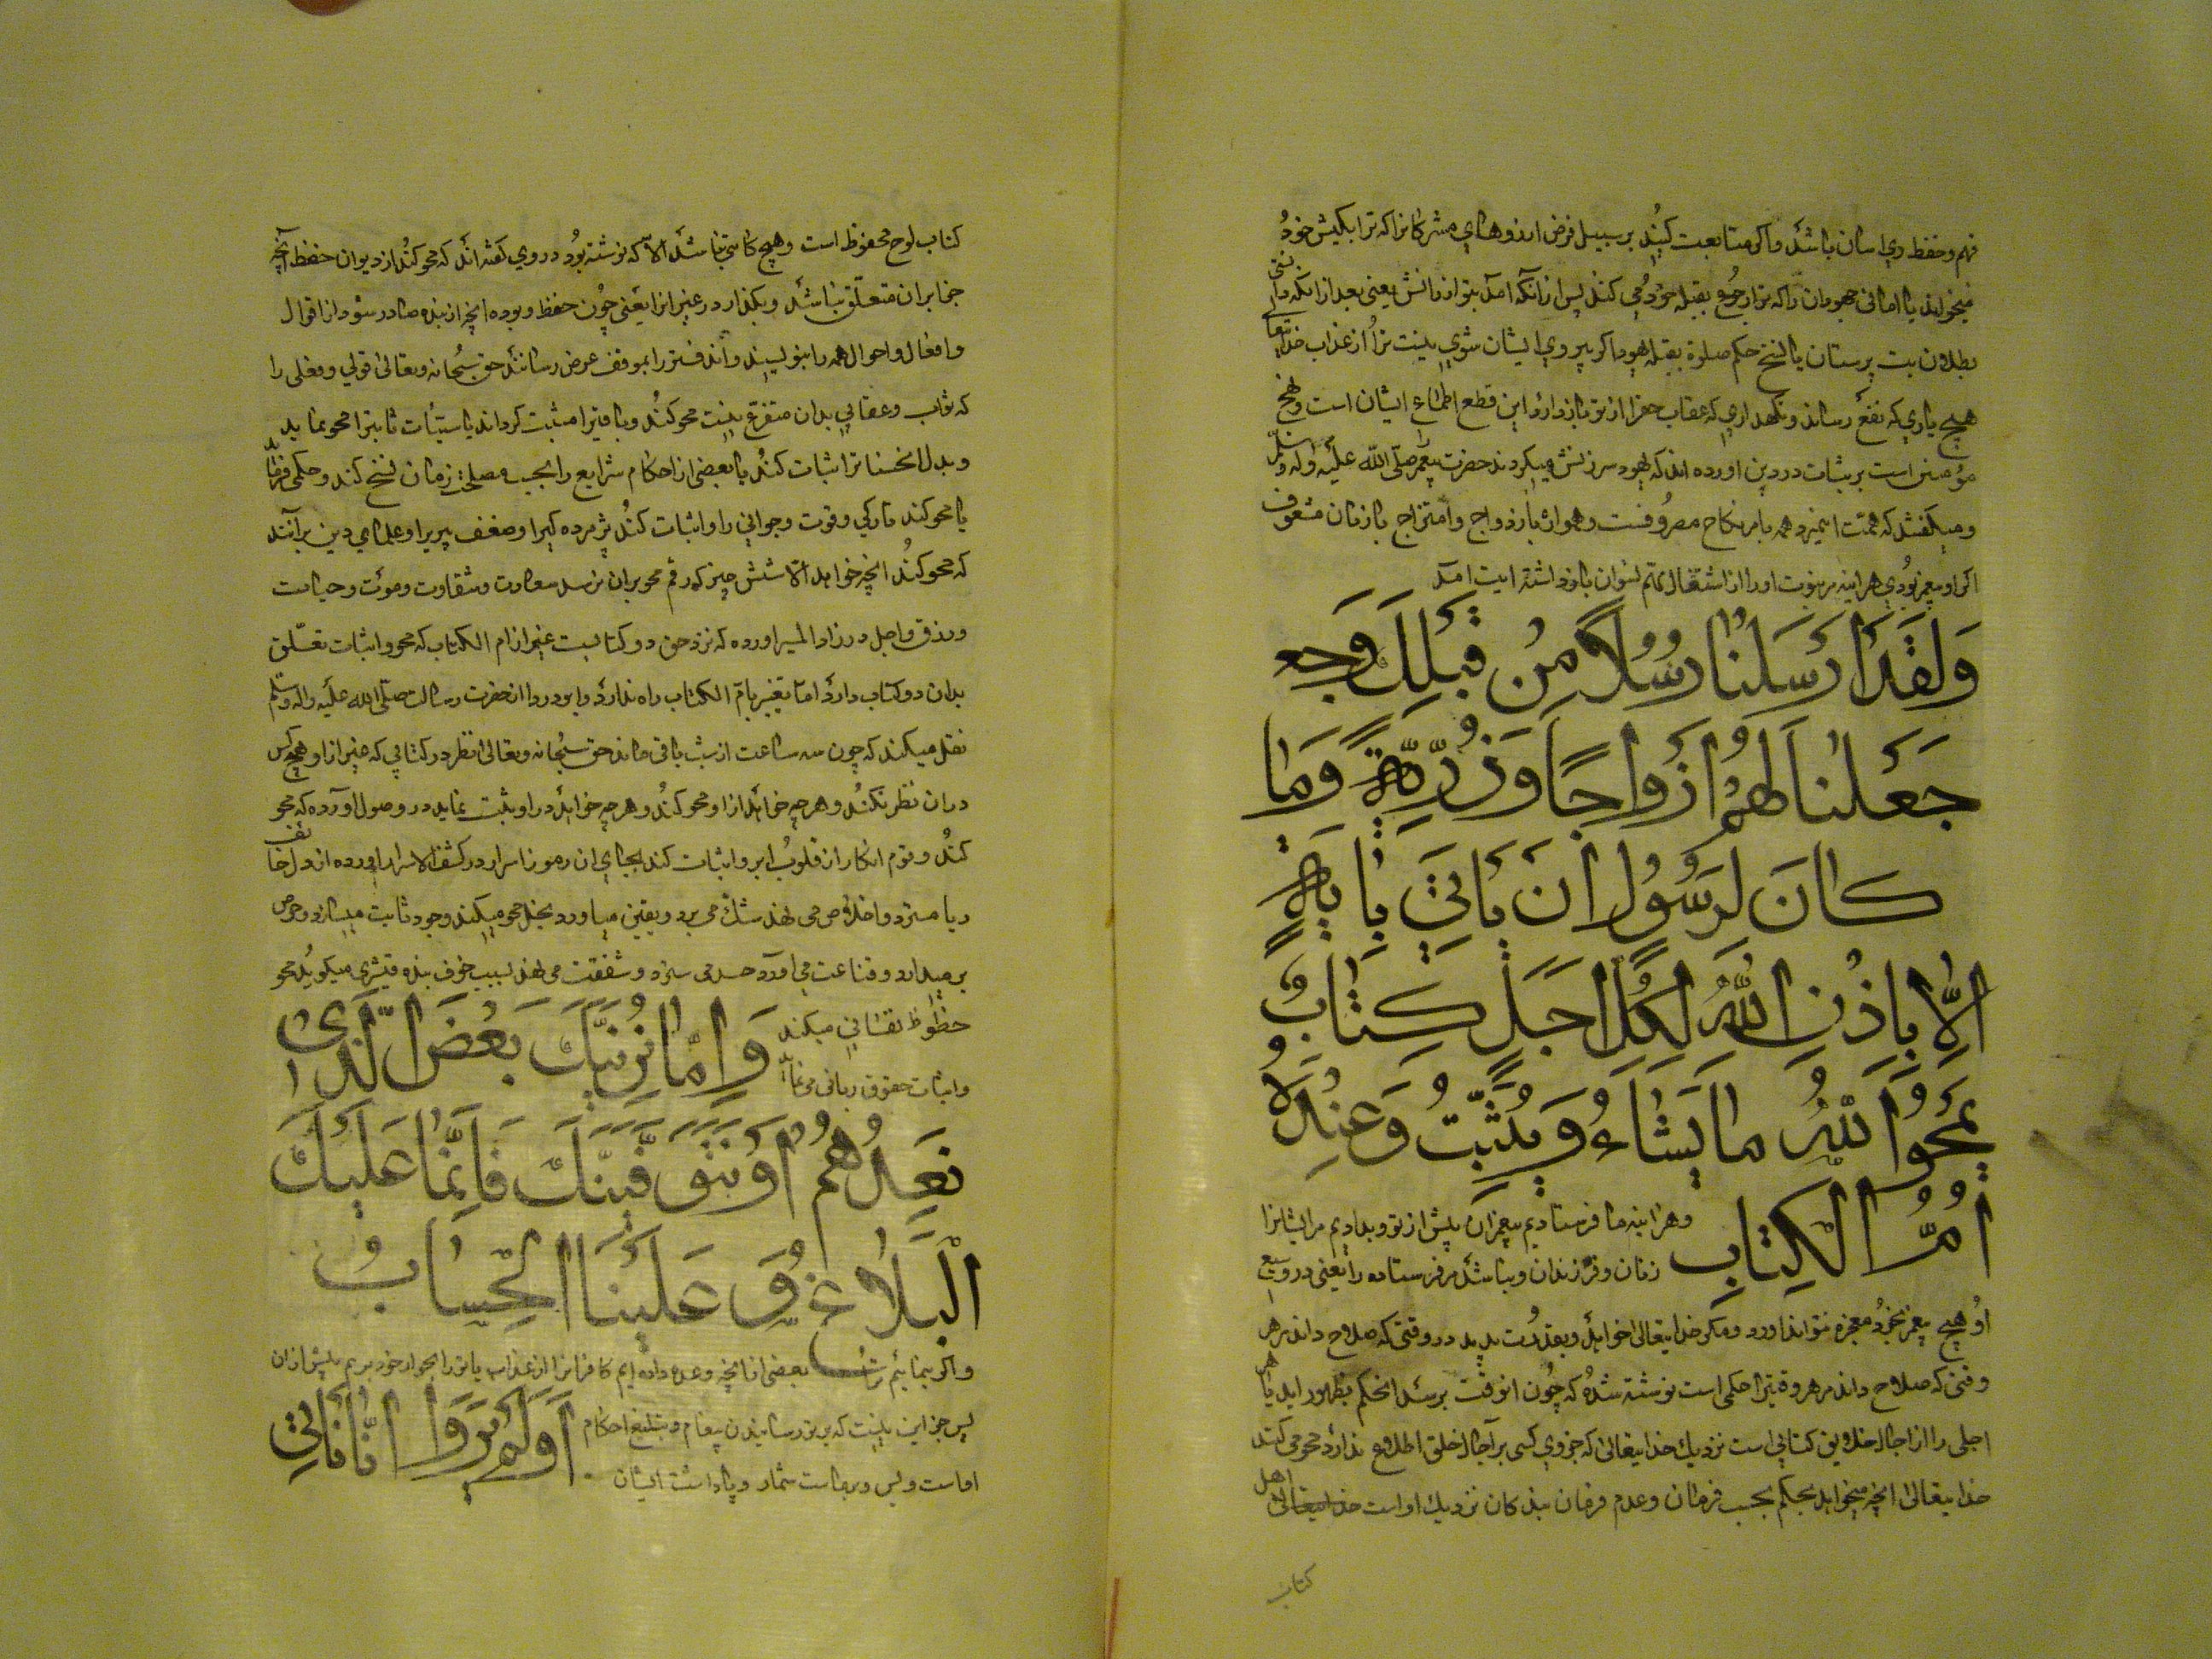 فهم و حفظ وی اسان باشد و اکر متابعت کنی بر سبیل فرض ارزوهای مشرکانرا که ترا بکیش خود
میخوانند یا امانی جهودان را که ترا رجوع بقبله خود می کنند پس ازانکه امد بتو از دانش یعنی بعد ازانکه دانستی
بطلان بت پرستان یا نسخ حکم صلوة بقبله یهود اکر پیروی ایشان شوی نیست ترا از عذاب خدایتعالی
هیچ یاری که نفع رساند و نکهداری که عقاب حقرا از تو باز دارد این قطع اطماع ایشان است و تهیج
مؤمنین است بر ثبات در دین اورده اند که یهود سرزنش میکردند حضرت پیغمبر صلی الله علیه و اله و سلم
و میکفتند که همت این مرد همه بامر نکاح مصروفست و همواره بازدواج و امتزاج با زنان مشعوف
اکر او پیغمبر بودی هراینه امر نبوت او را از اشتغال بمهم نسوان باز داشتی ایت امد
وَلَقَدْ اَرْسَلْنَا رُسُلاً مِنْ قَبْلِكَ وَجَعَ
جَعَلْنَا لَهُمْ اَزْوَاجًا وَذُرِّيَّةً وَمَا
كَانَ لِرَسُولٍ اَنْ يَاْتِيَ بِاٰيَةٍ
اِلَّا بِاِذْنِ اللهِ لِكُلِّ اَجَلٍ كِتَابٌ
يَمْحُوا اللهُ مَا يَشَاءُ وَيُثْبِتُ وَعِنْدَهُ
اُمُّ الْكِتَابِ وهراینه ما فرستادیم پیغمبران پیش از تو و بدادیم مرایشانرا
زنان و فرزندان و نباشد مر فرستاده را یعنی در وسع
او هیچ پیغمبر بخود معجزه نتواند اورد و مکر خدایتعالی خواهد و بقدرت پدید در وقتی که صلاح داند مر هر
وقتی که صلاح داند مر هر وقتیرا حکمی است نوشته شده که چون انوقت برسد انحکم بظهور اید یا هر
اجلی را از اجال خلایق کتابی است نزدیک خدایتعالی که جز وی کسی بر اجال خلق اطلاع ندارد محو می کند
خدایتعالی انچه میخواهد بحکم بحسب فرمان و عدم فرمان بندکان نزدیک او است خدایتعالی اصل
کتاب
کتاب لوح محفوظ است و هیچ کاینی نباشد الا که نوشته بود در وی کفته اند که محو کند از دیوان حفظه انچه
جزا بران متعلق نباشد و بکذارد غیر انرا یعنی چون حفظه انچه از بنده صادر شود از اقوال
و افعال و احوال همه را بنویسند و اندفتر را بموقف عرض رسانند حق سبحانه و تعالی قولی و فعلی را
که ثواب و عقابی بدان متفرع نیست محو کند و باقیرا مثبت کرداند یا سیئات تایبرا محو نماید
و بدل ان حسنات را اثبات کند یا بعضی از احکام شرایع را بحسب مصلحت زمان نسخ کند و حکمی فرماید
یا محو کند تازکی و قوت و جوانی را و اثبات کند پژمرده کی را و ضعف پیری را و علمای دین برانند
که محو کند انچه خواهد الا شش چیز که رقم محو بران نرسد سعادت و شقاوت و موت و حیات
و رزق و اجل در زاد المسیر اورده که نزد حق دو کتابست غیر از ام الکتاب که محو و اثبات تعلق
بدان دو کتاب دارد اما تغییر بام الکتاب راه ندارد و ابو دردا از حضرت رسالت صلی الله علیه و اله و سلم
نقل میکند که چون سه ساعت از شب باقی ماند حق سبحانه و تعالی نظر در کتابی که غیر از او هیچ کس
دران نظر نکند و هر چه خواهد ازاو محو کند و هر چه خواهد دراو ثبت نماید در وصول اورده که محو
کند رقوم انکار از قلوب ابرار و اثبات کند بجای ان رموز اسرار در کشف الاسرار اورده از دل خائف
ریا میبرد و اخلاص می نهد شک می برد و یقین میاورد بخل محو میکند وجود ثابت میسازد و حرص
بر میدارد و قناعت می اورد حسد می ستاند و شفقت می نهد بسبب خوف بنده قشیری میکوید محو
حظوظ نفسانی میکند وَاِمَّا نُرِيَنَّكَ بَعْضَ الَّذِي
و اثبات حقوق ربانی می نماید
نَعِدُهُمْ اَوْ نَتَوَفَّيَنَّكَ فَاِنَّمَا عَلَيْكَ
الْبَلَاغُ وَ عَلَيْنَا الْحِسَابُ
و اکر بنمائیم ترا بعضی از انچه وعده داده ایم کافرانرا از عذاب یا ترا بجوار خود بریم پیش ازان
پس جز این نیست که بر تو رسانیدن پیغام و تبلیغ احکام اَوَلَمْ يَرَوْا اَنَّا نَاْتِي
اماست و بس و برماست شمار و پاداشت ایشان